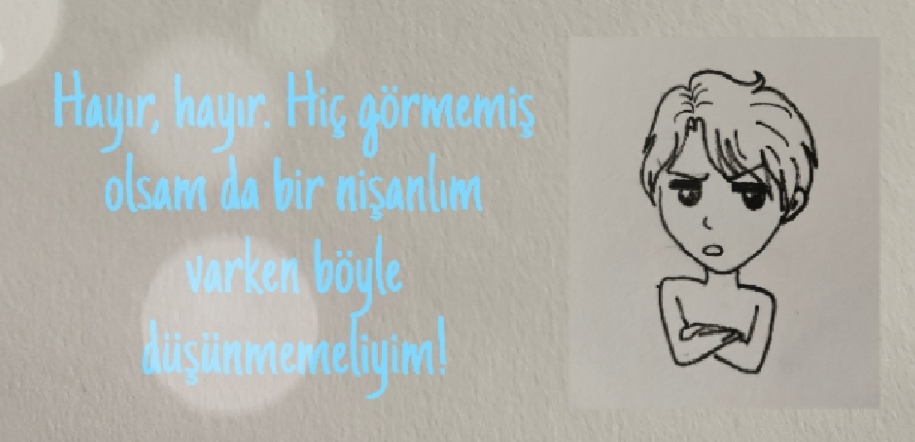 Hayır, hayır. Hiç görmemiş
olsam da bir nişanlım
varken böyle
düşünmemeliyim!